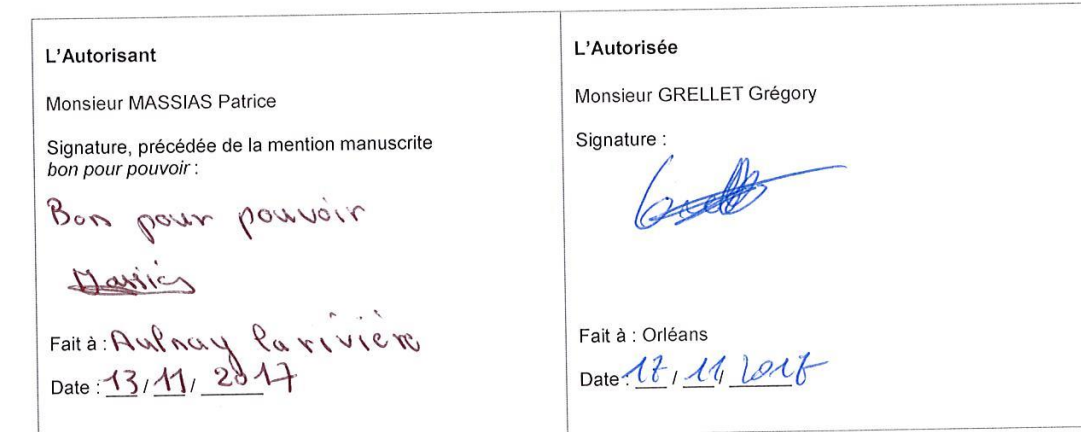 L'Autorisant
Monsieur MASSIAS Patrice
Signature, précédée de la mention manuscrite
bon pour pouvoir :
Bon pour pouvoir
Massias
Fait à : Aulnay la rivière
Date : 13/11/2017
L'Autorisée
Monsieur GRELLET Grégory
Signature :
Fait à : Orléans
Date : 17/11/2017